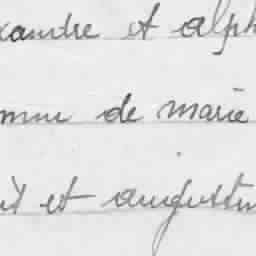 xandre et alph
de marie
et augustin